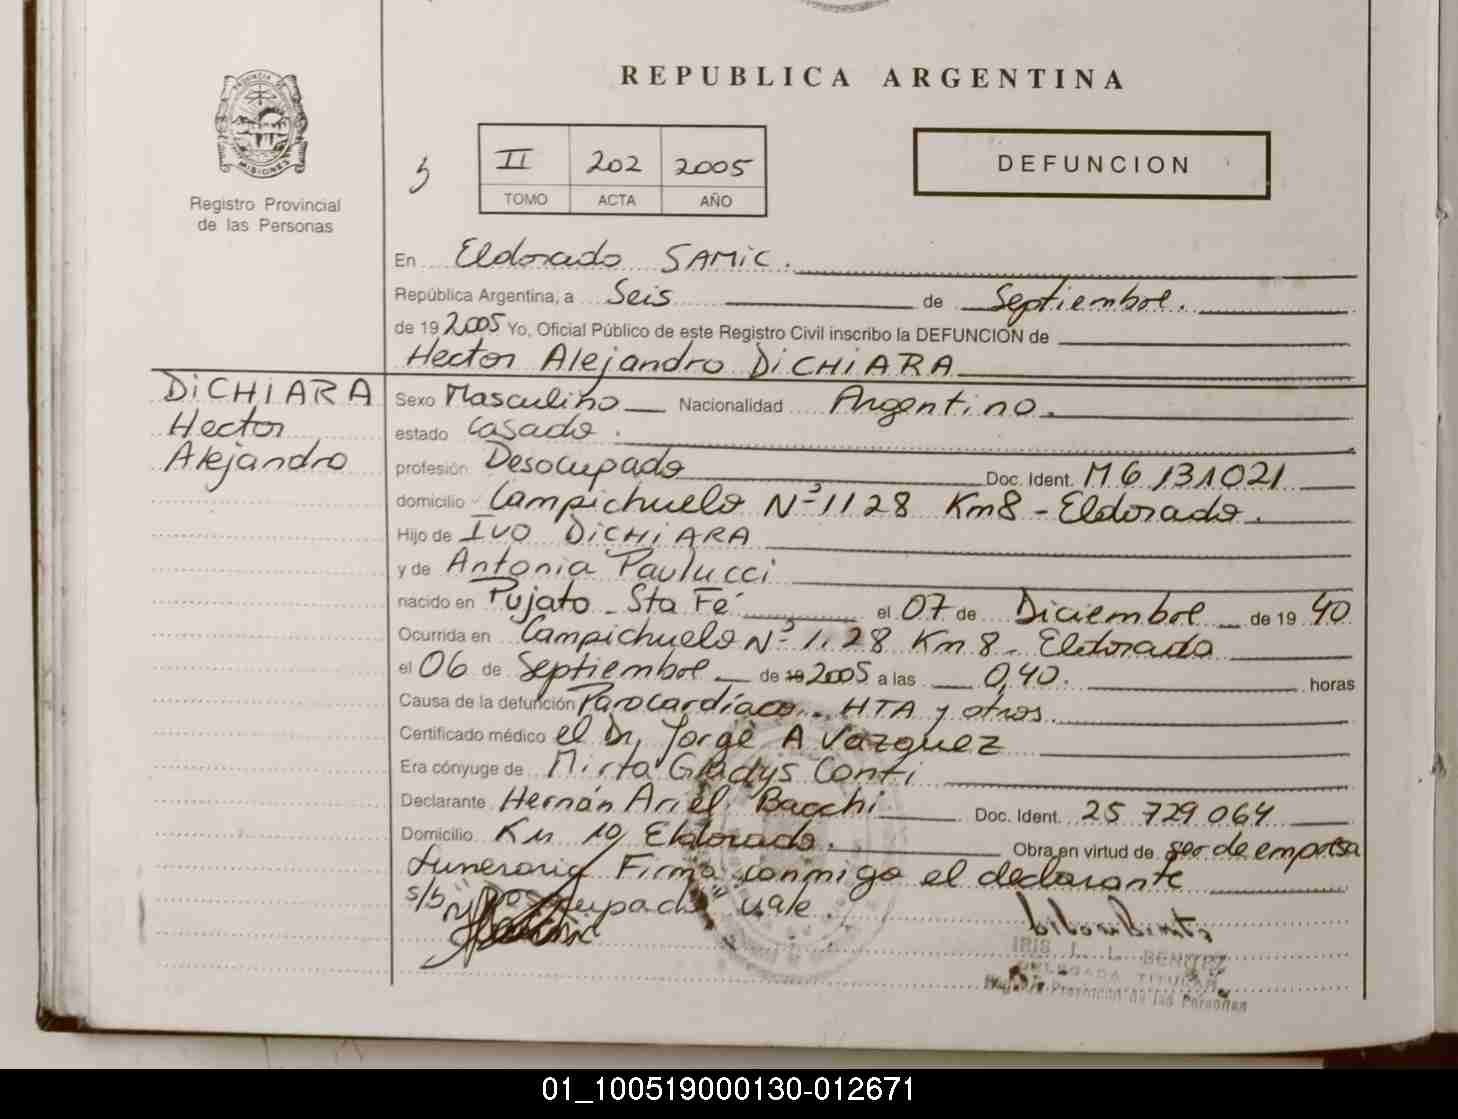 REPUBLICA ARGENTINA
PROVINCIA DE
MISIONES
Registro Provincial
de las Personas
II 202 2005
TOMO ACTA AÑO
DEFUNCION
En Eldorado SAMIC.
República Argentina, a Seis de Septiembre.
de 19 2005 Yo, Oficial Público de este Registro Civil inscribo la DEFUNCION de
Hector Alejandro DiCHiARA
DiCHiARA
Hector
Alejandro
Sexo Masculino Nacionalidad Argentino.
estado Casado.
profesión Desocupado Doc. Ident. M 6 131021
domicilio Campichuelo Nº 1128 Km8 - Eldorado.
Hijo de IVO DiCHiARA
y de Antonia Paulucci
nacido en Pujato - Sta Fé el 07 de Diciembre de 19 40
Ocurrida en Campichuelo Nº 1128 Km 8 - Eldorado
el 06 de Septiembre de 19 2005 a las 0,40. horas
Causa de la defunción Parocardíaco.. HTA y otros.
Certificado médico el Dr, Jorge A Vazquez
Era cónyuge de Mirta Gladys Conti
Declarante Hernán Ariel Bacchi Doc. Ident. 25 729 064
Domicilio Km 10 Eldorado. Obra en virtud de ser de empresa
funeraria Firma conmigo el declarante
s/b "Desocupado" vale.
IRIS L. L. BENITEZ
DELEGADA TITULAR
Registro Provincial de las Personas
01_100519000130-012671